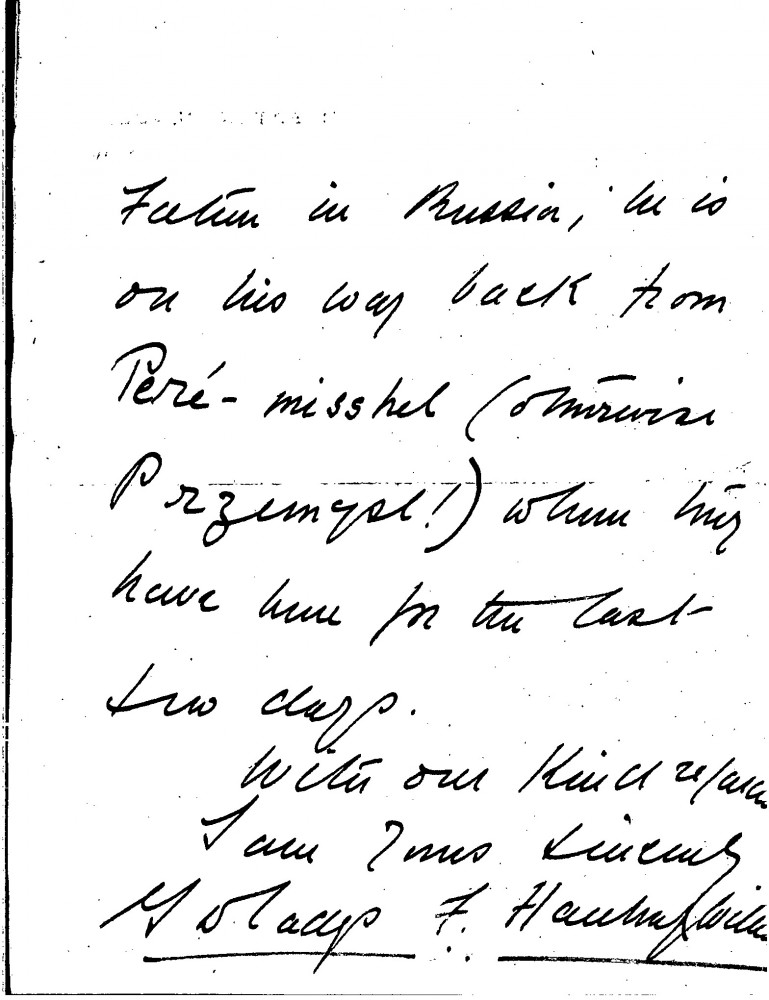 in Russia, he is
on his way back from
Peré-misshel (otherwise
Przemysl!) where they
have been for the last
two days.
With our Kind regards
I am Yours sincerely
Gwladys F. Hanbury Willi